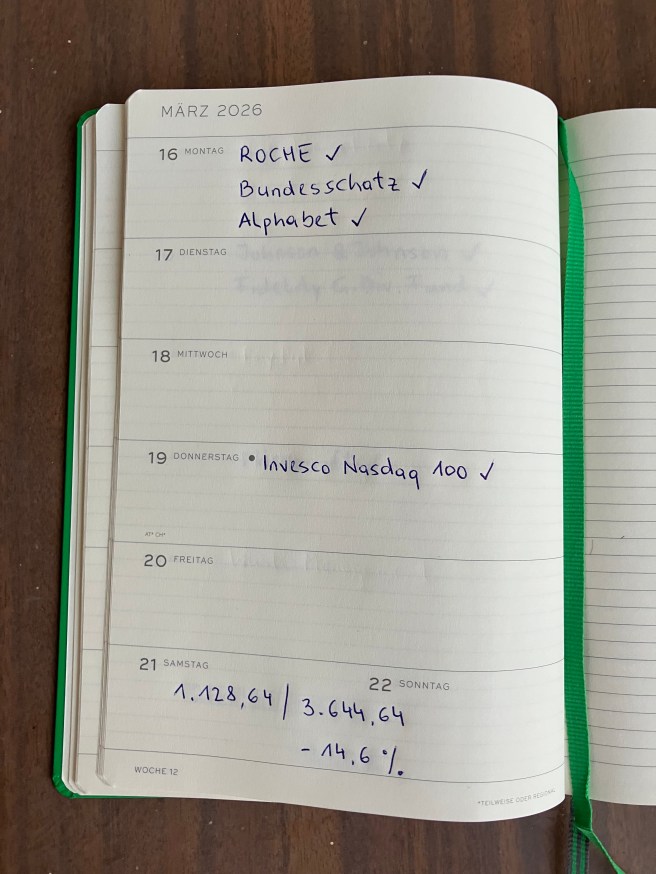 MÄRZ 2026
16 MONTAG ROCHE ✓
Bundesschatz ✓
Alphabet ✓
17 DIENSTAG Johnson & Johnson ✓
18 MITTWOCH
19 DONNERSTAG • Invesco Nasdaq 100 ✓
AT* CH*
20 FREITAG
21 SAMSTAG
22 SONNTAG
1.128,64 / 3.644,64
- 14,6 %.
WOCHE 12
*TEILWEISE ODER REGIONAL